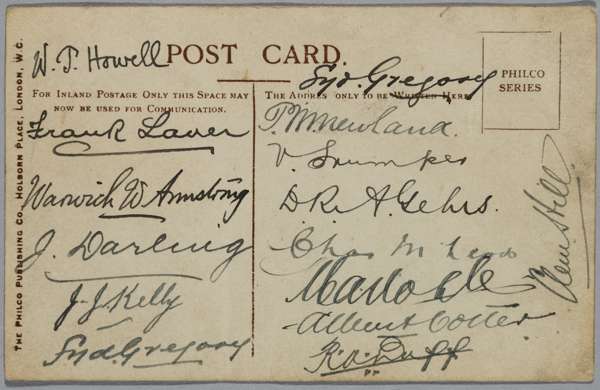 W. P. Howell
POST CARD.
FOR INLAND POSTAGE ONLY THIS SPACE MAY
NOW BE USED FOR COMMUNICATION.
Frank Laver
Warwick W Armstrong
J. Darling
J. J. Kelly
Syd. Gregory
Syd. Gregory
THE ADDRES ONLY TO BE WRITTEN HERE
P. M Newland.
V. Trumper
D. R. A. Gehrs.
Chas
M A Noble
Albert Cotter
R. A. Duff
PHILCO
SERIES
Clem. Hill.
THE PHILCO PUBLISHING CO., HOLBORN PLACE, LONDON, W.C.